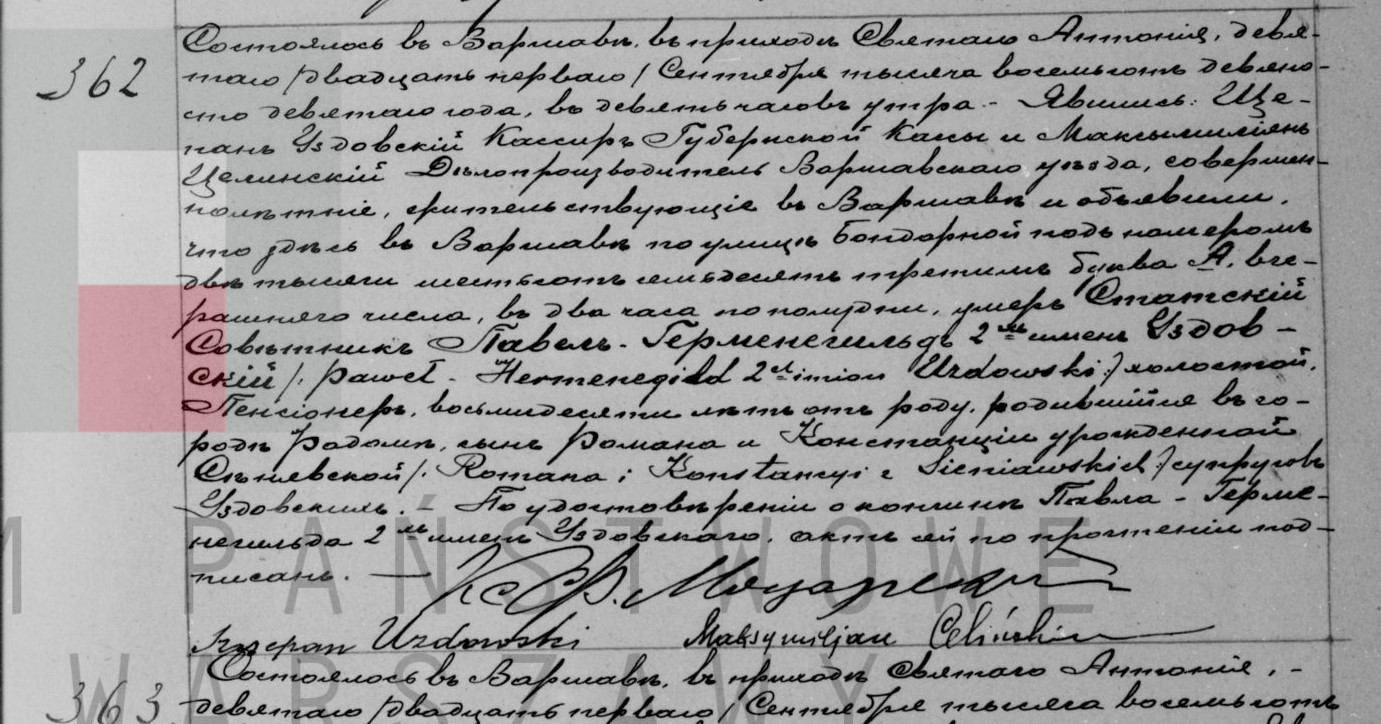 362
Состоялось въ Варшавѣ, въ приходѣ Святаго Антонія, девя-
таго /двадцать перваго/ Сентября тысяча восемьсотъ девяно-
сто девятаго года, въ девять часовъ утра. - Явились: Ще-
панъ Уздовскій Кассиръ Губернской Кассы и Максымиліянъ
Целинскій Дѣлопроизводитель Варшавскаго уѣзда, совершен-
нолѣтніе, жительствующіе въ Варшавѣ и объявили,
что здѣсь въ Варшавѣ по улицѣ Бондарной подъ номеромъ
двѣ тысячи шестьсотъ семьдесятъ третимъ буква А, вче-
рашняго числа, въ два часа пополудни, умеръ Статскій
Совѣтникъ Павелъ - Герменегильдъ 2хъ именъ Уздов -
скій /: Paweł - Hermenegild 2ch imion Uzdowski :/ холостой,
Пенсіонеръ, восьмидесяти лѣтъ отъ роду, родившійся въ го-
родѣ Радомѣ, сынъ Романа и Констанціи урожденной
/: Romana i Konstancyi z Sieniawskich :/ супруговъ
Уздовскихъ. - По удостовѣреніи о кончинѣ Павла - Герме-
негильда 2хъ именъ Уздовскаго, актъ сей по прочтеніи под-
писанъ. -
Szczepan Uzdowski Maksymiljan Celiński
M PAŃSTWOWE
WARSZAWY
Состоялось въ Варшавѣ, въ приходѣ Святаго Антонія, -
363
девятаго /двадцать перваго/ Сентября тысяча восемьсотъ